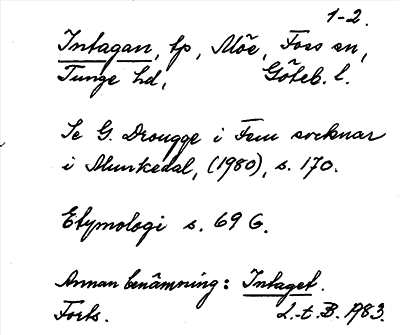 1-2.
Intagan, tp, Möe, Foss sn,
Tunge hd, Göteb. l.
Se G. Drougge i Fem socknar
i Munkedal, (1980), s. 170.
Etymologi s. 69 G.
Annan benämning: Intaget.
Forts. L.t.B. 1983.